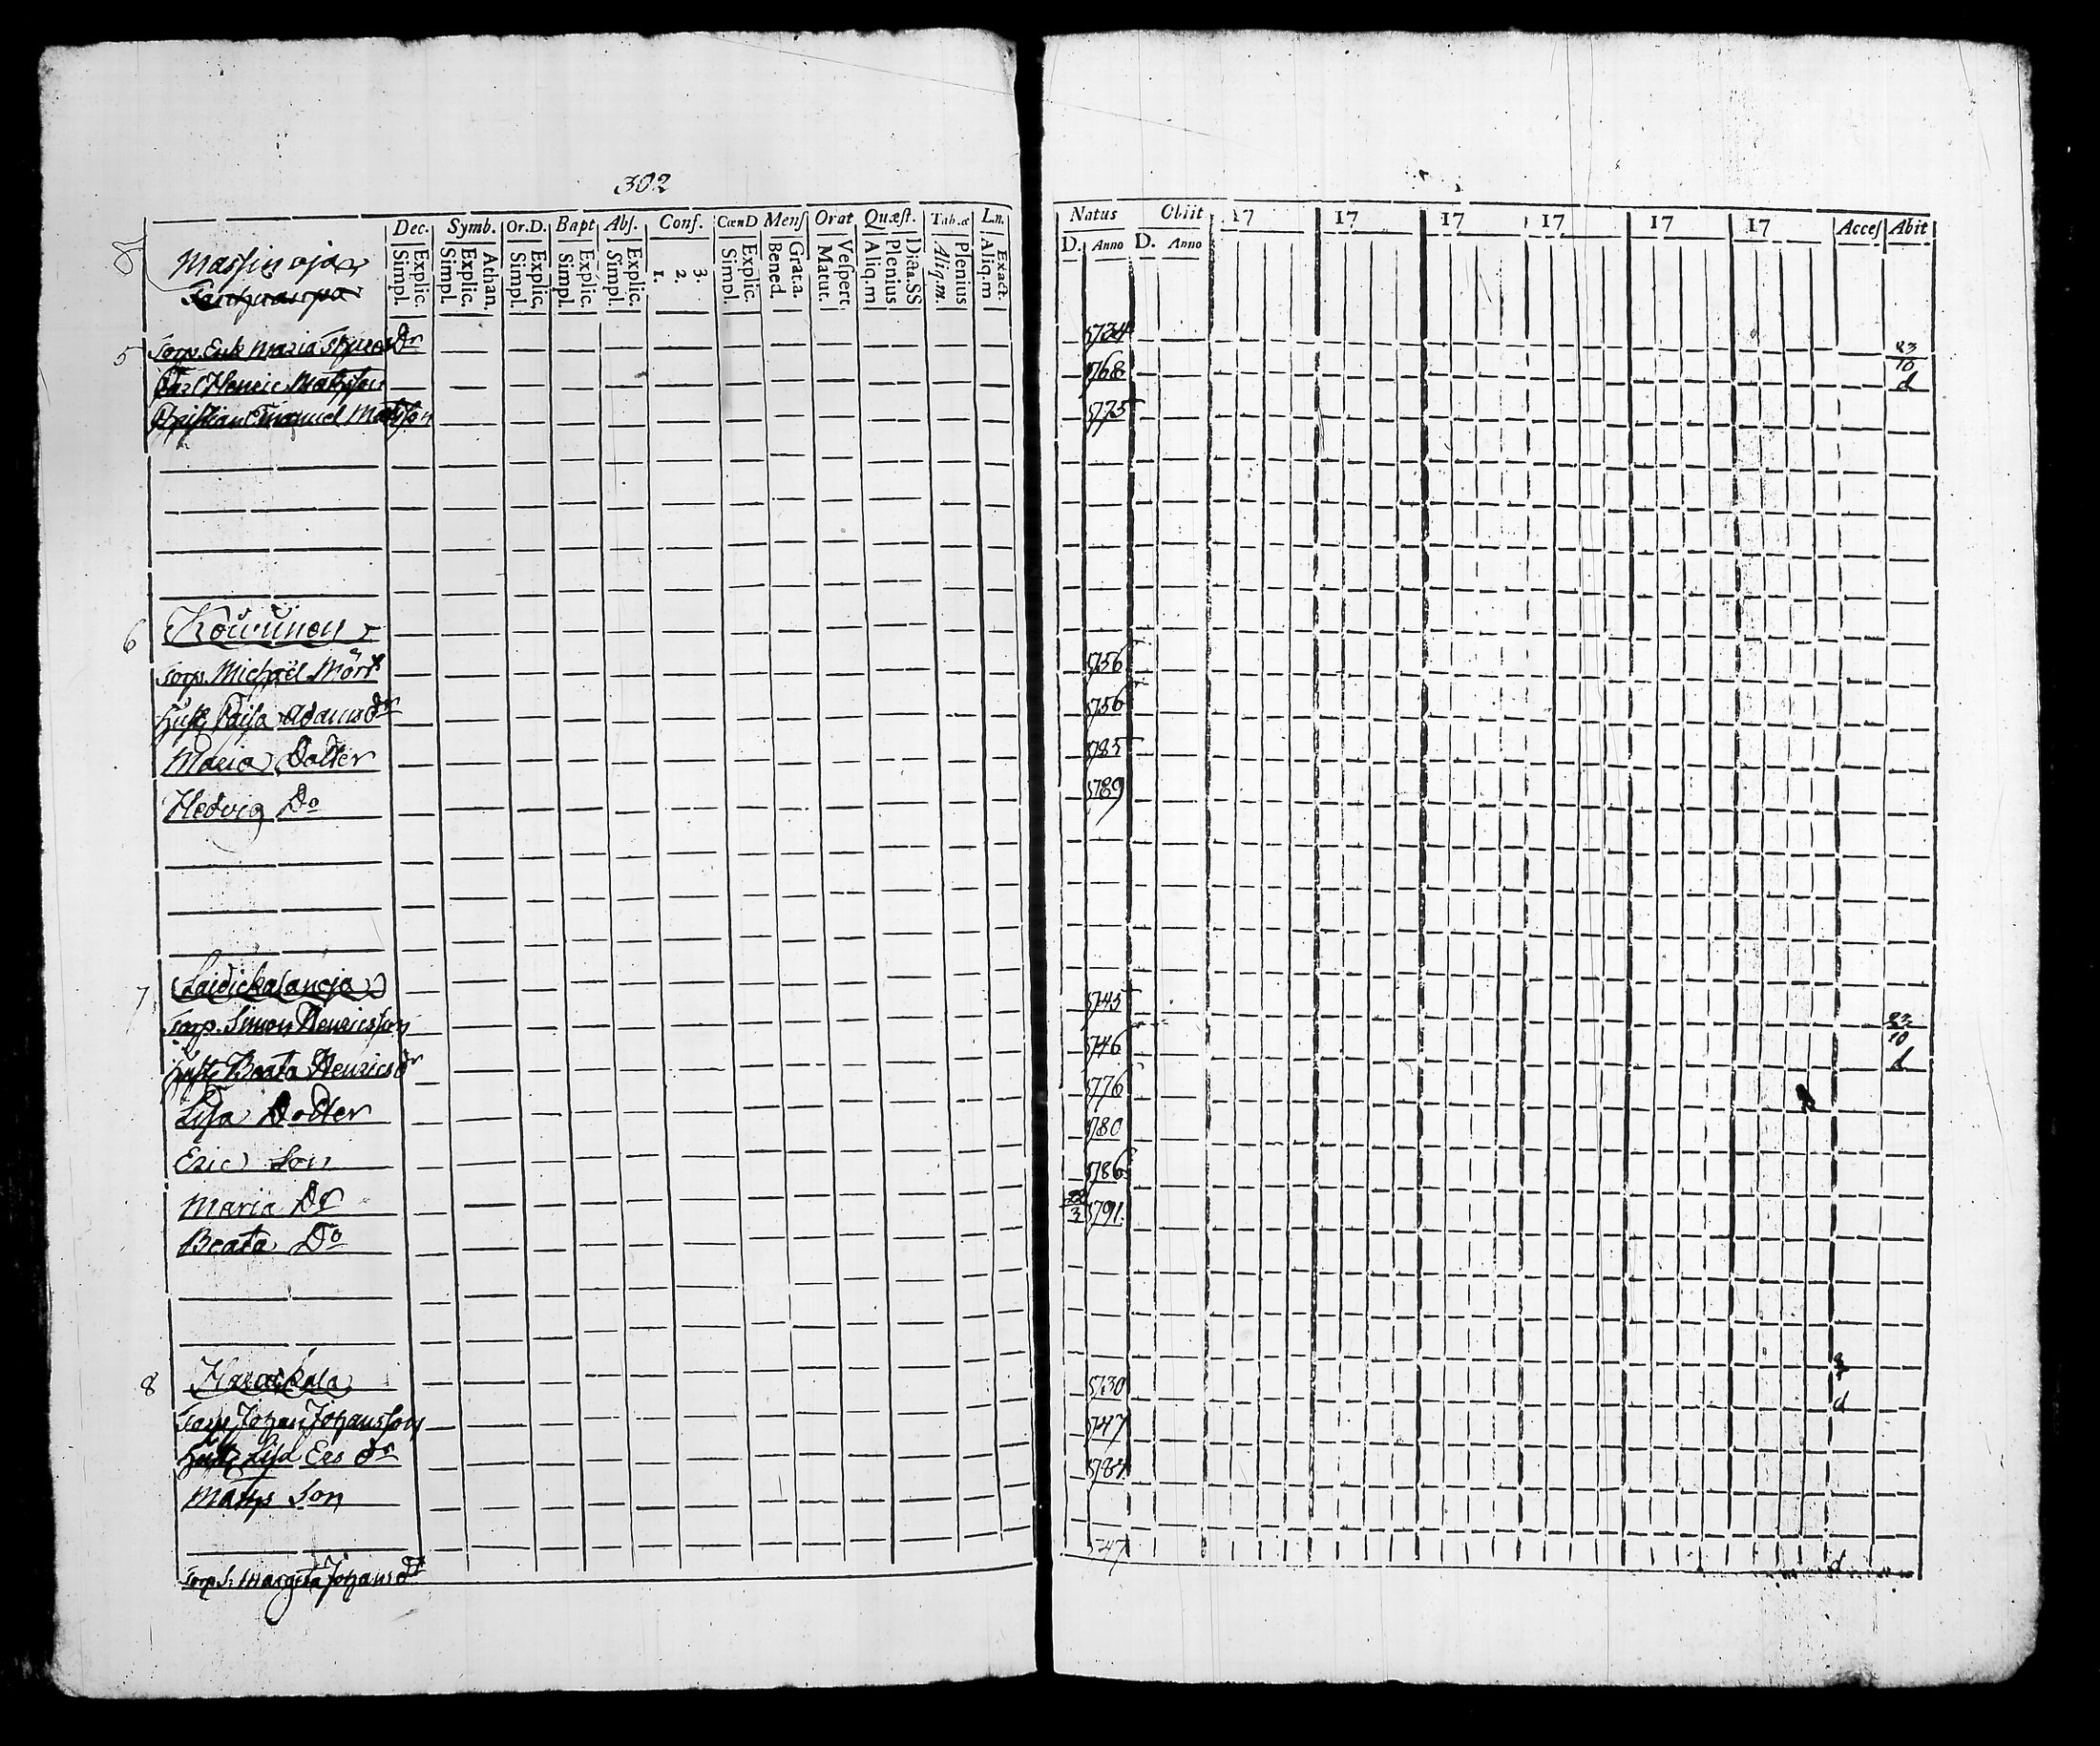 302
Dec. Symb. Or.D. Bapt Abſ. Conf. CœnD Menſ Orat Quæſt. Tab.æ
Simpl. Explic. Simpl. Explic. Athan. Simpl. Explic. Simpl. Explic. Simpl. Explic. 1. 2. 3. Simpl. Explic. Bened. Gra:a. Matut. Veſpert. Aliq.m Plenius Dicta.SS Aliq.m. Plenius Aliq.m Exact.
Natus Obiit 17 17 17 17 17 17 Acceſ Abit
D. Anno D. Anno
Massin oja
5 Torp. Enk Maria dr 1734 23/10
Carl Henric Matsson 1768 d
Christian Emanuel Matsson 1775
6
Torp. Michaël Mörk 1756
Hust Caisa Adamsdr 1756
Maria Dotter 1785
Hedvig Do 1789
7 Laidickalanoja
Torp. Simon Henricsson 1745 23/10
Hust Beata Henricsdr 1746 d
Lisa Dotter 1776
Eric Son 1780
Maria Dr 1786
Beata Do 22/3 1791.
8
Torp Johan Johansson 1730 d
Hust Lisa Ersdr 1747
Matts Son 1784
Margeta Johansdr 1747 d